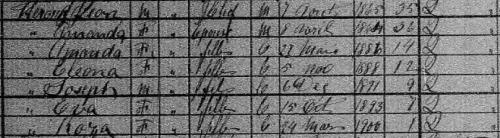 Leon m " Chef m 7 Aout 1865 35 Q
" Amanda F " Epouse m 8 Avril 1864 36 Q
" Amanda F " fille C 27 Mars 1886 14 Q
" Eleona F " fille C 5 nov 1888 12 Q
" Joseph m " fils C 6 1891 9 Q
" Eva F " fille C 15 Oct 1893 Q
" Roza F " fille C 24 Mars 1900 1 Q